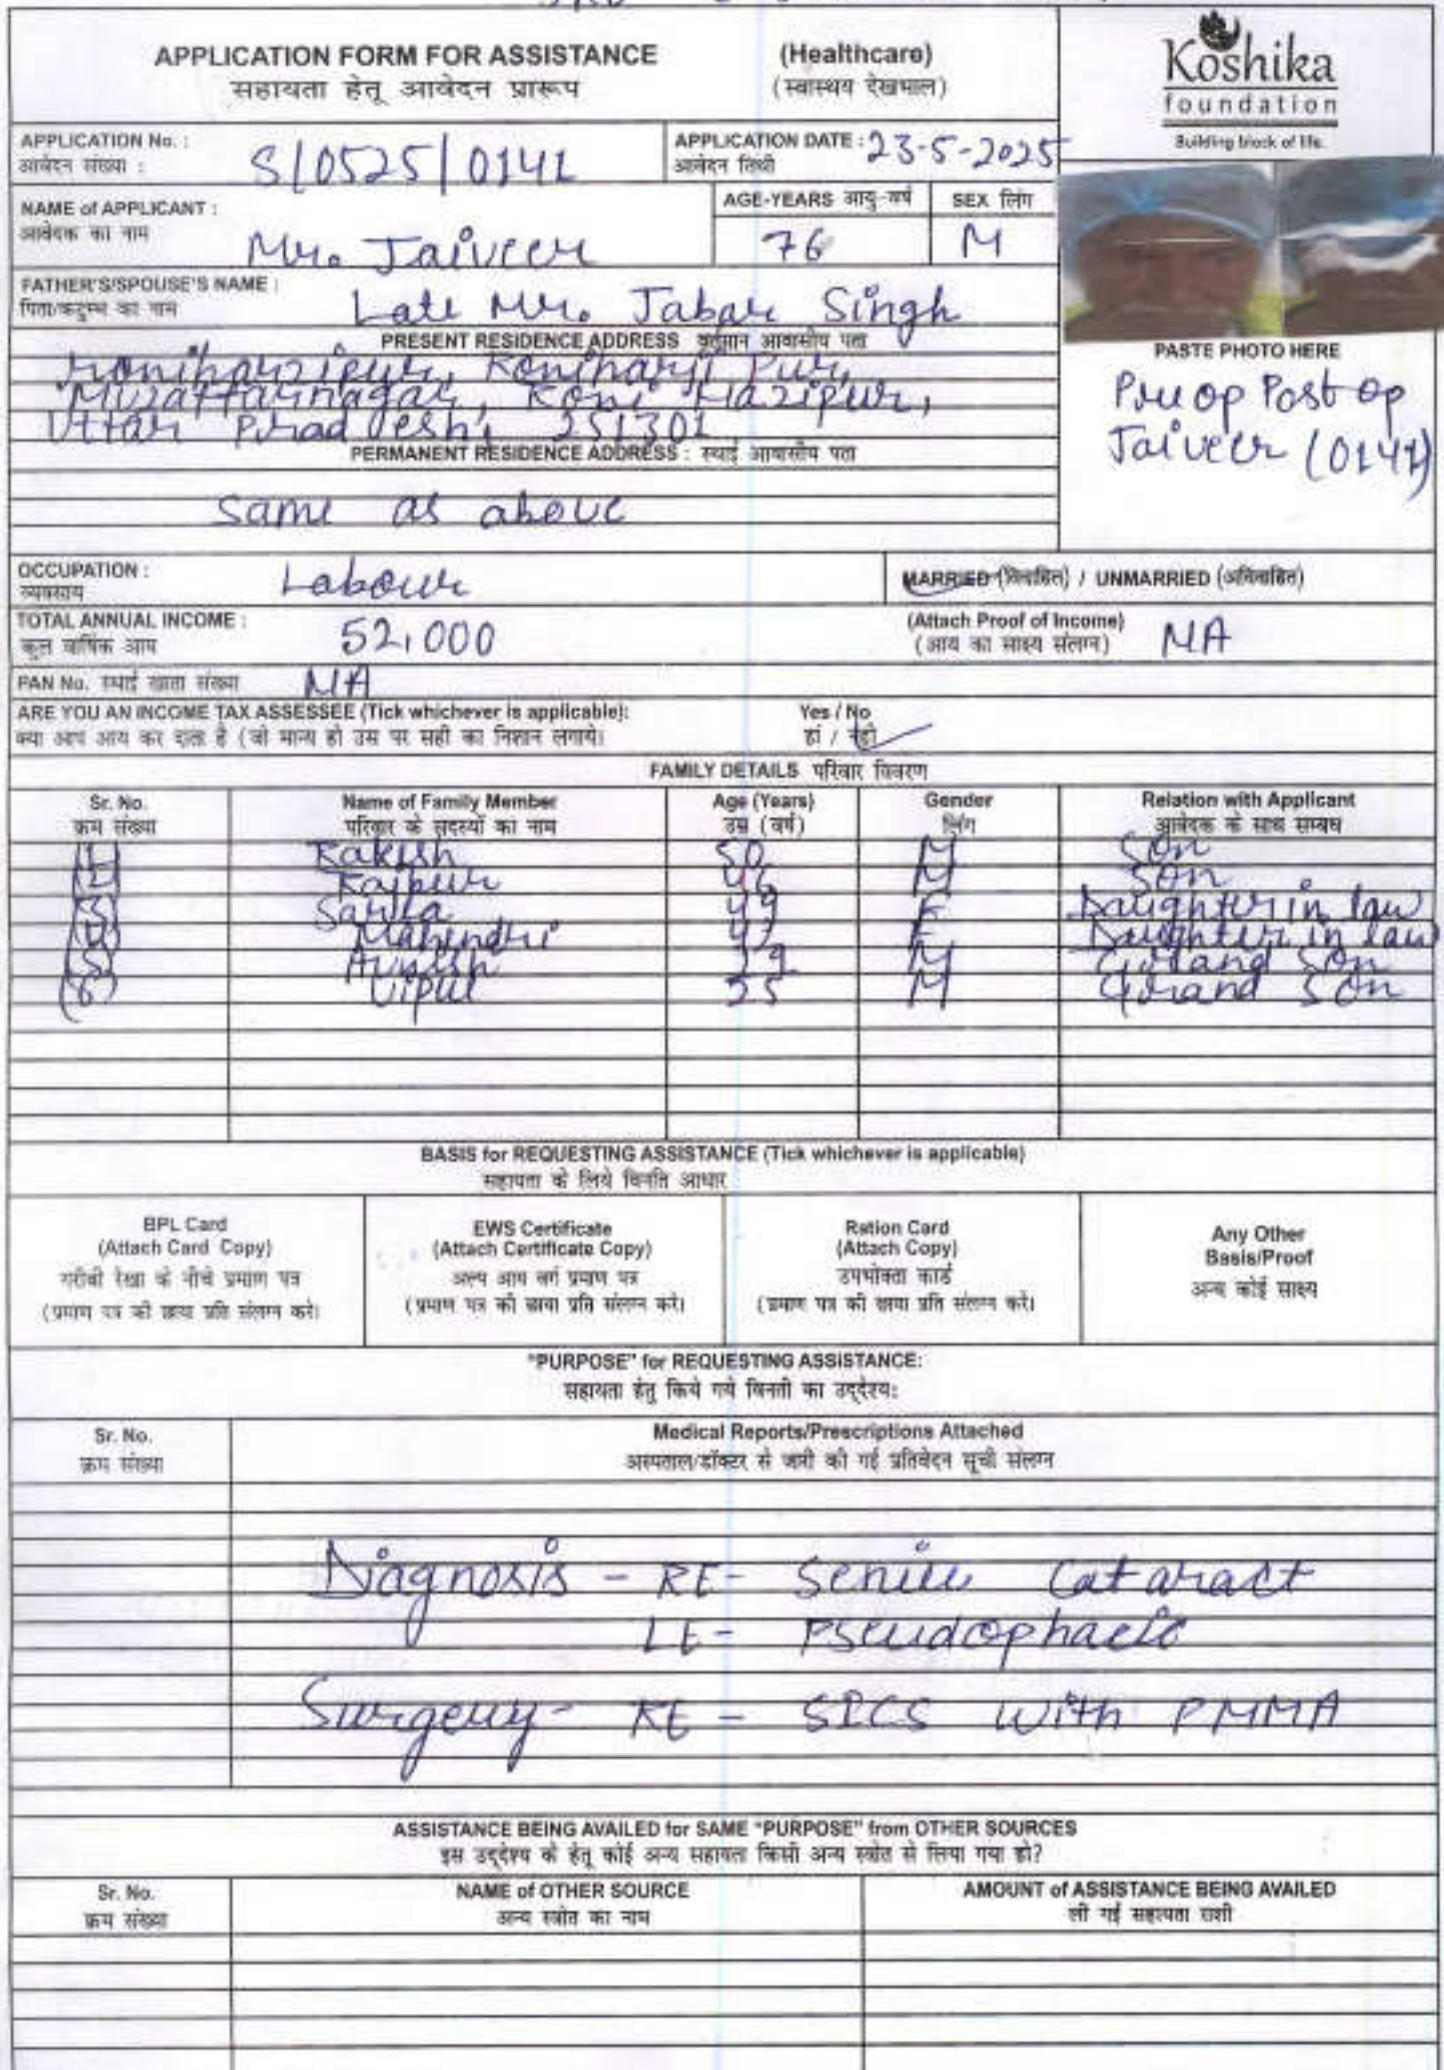 APPLICATION FORM FOR ASSISTANCE (Healthcare)
सहायता हेतू आवेदन प्रारूप (स्वास्थय देखभाल)
Koshika
foundation
Building block of life.
APPLICATION No. :
आवेदन संख्या :
S/0525/0141
APPLICATION DATE : 23-5-2025
आवेदन तिथी
NAME of APPLICANT :
आवेदक का नाम
Mr. Jaiveer
AGE-YEARS आयु-वर्ष
76
SEX लिंग
M
FATHER'S/SPOUSE'S NAME :
पिता/कटुम्ब का नाम
Late Mr. Jabar Singh
PRESENT RESIDENCE ADDRESS वर्तमान आवासीय पता
Roniharjipur, Roniharji Pur,
Muzaffarnagar, Roni Hazipur,
Uttar Pradesh, 251301
PASTE PHOTO HERE
Pre op Post op
Jaiveer (0141)
PERMANENT RESIDENCE ADDRESS : स्थाई आवासीय पता
Same as above
OCCUPATION :
व्यवसाय
Labour
MARRIED (विवाहित) / UNMARRIED (अविवाहित)
TOTAL ANNUAL INCOME :
कुल वार्षिक आय
52,000
(Attach Proof of Income)
(आय का साक्ष्य संलग्न)
NA
PAN No. स्थाई खाता संख्या NA
ARE YOU AN INCOME TAX ASSESSEE (Tick whichever is applicable): Yes / No
क्या आप आय कर दाता है (जो मान्य हो उस पर सही का निशान लगाये। हां / नहीं
FAMILY DETAILS परिवार विवरण
Sr. No. Name of Family Member Age (Years) Gender Relation with Applicant
क्रम संख्या परिवार के सदस्यों का नाम उम्र (वर्ष) लिंग आवेदक के साथ सम्बध
(1) Rakesh 50 M Son
(2) Rajpur 46 M Son
(3) Sarita 49 F Daughter in law
(4) Mahendri 43 F Daughter in law
(5) M Grand Son
(6) Vipul 25 M Grand Son
BASIS for REQUESTING ASSISTANCE (Tick whichever is applicable)
सहायता के लिये विनति आधार
BPL Card
(Attach Card Copy)
गरीबी रेखा के नीचे प्रमाण पत्र
(प्रमाण पत्र की छाया प्रति संलग्न करे।
EWS Certificate
(Attach Certificate Copy)
अल्प आय वर्ग प्रमाण पत्र
(प्रमाण पत्र की छाया प्रति संलग्न करे।
Ration Card
(Attach Copy)
उपभोक्ता कार्ड
(प्रमाण पत्र की छाया प्रति संलग्न करे।
Any Other
Basis/Proof
अन्य कोई साक्ष्य
"PURPOSE" for REQUESTING ASSISTANCE:
सहायता हेतु किये गये विनती का उद्देश्य:
Sr. No.
क्रम संख्या
Medical Reports/Prescriptions Attached
अस्पताल/डॉक्टर से जारी की गई प्रतिवेदन सूची संलग्न
Diagnosis - RE- Senile Cataract
LE- Pseudophacic
Surgery- RE - SICS with PMMA
ASSISTANCE BEING AVAILED for SAME "PURPOSE" from OTHER SOURCES
इस उद्देश्य के हेतू कोई अन्य सहायता किसी अन्य स्त्रोत से लिया गया हो?
Sr. No. NAME of OTHER SOURCE AMOUNT of ASSISTANCE BEING AVAILED
क्रम संख्या अन्य स्त्रोत का नाम ली गई सहायता राशी